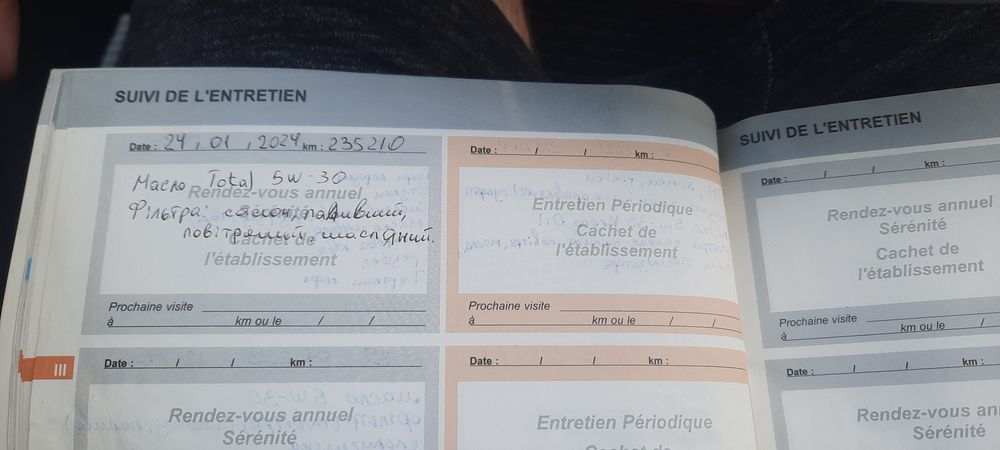 SUIVI DE L'ENTRETIEN
Date : 24 / 01 / 2024 km : 235210
Масло Total 5W-30
Rendez-vous annuel
Sérénité
Фільтра: салон, паливний,
повітряний, масляний.
Cachet de
l'établissement
Prochaine visite
à km ou le / /
Date : / / km :
Entretien Périodique
Cachet de
l'établissement
Prochaine visite
à km ou le / /
Date : / / km :
Rendez-vous annuel
Sérénité
Date : / / km :
Entretien Périodique
Cachet de
SUIVI DE L'ENTRETIEN
Date : / / km :
Rendez-vous annuel
Sérénité
Cachet de
l'établissement
Prochaine visite
à km ou le /
Date : / / km :
Rendez-vous
Sérénité
III